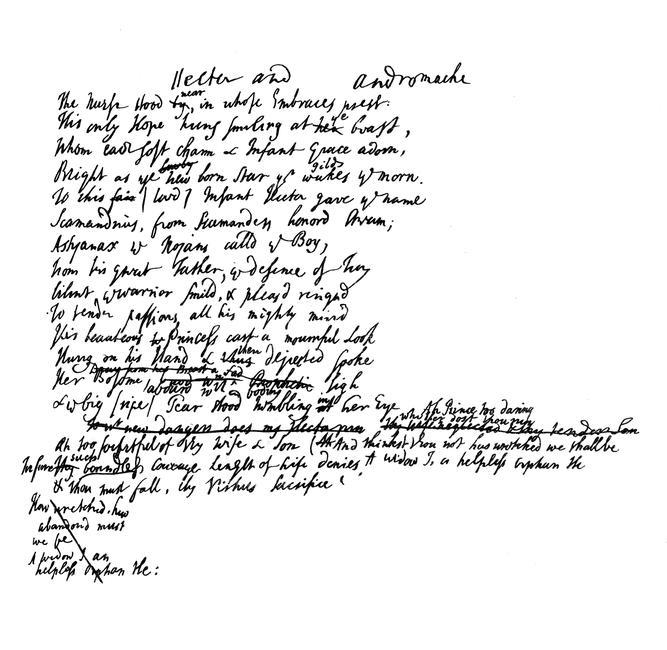 Hector and Andromache
The Nurse stood by, near in whose Embraces prest
His only Hope hung smiling at her ye breast,
Whom each soft charm & Infant Grace adorn,
Bright as ye new born Star yt gilds wakes ye morn.
To this fair [lov'd] Infant Hector gave ye name
Scamandrius, from Scamanders honord Stream;
Astyanax ye Trojans calld ye Boy,
From his great Father, ye defence of Troy
Silent ye warrior smild, & pleasd resignd
To tender passions, all his mighty mind
His beauteous Princess cast a mournful Look
Hung on his Hand & then dejected spoke
Her Bosome labourd with a boding Sigh
& ye big [ripe] Tear stood trembling in her Eye
Ah Prince too daring
whither dost thou run
Ah too forgetful of thy Wife & Son
And thinkst thou not how wretched we shall be
A widow I, a helpless orphan He
such Courage Length of Life denies
& thou must fall, thy Virtues Sacrifice
How wretched, how
abandond must
we be
A widow I am
helpless orphan He: